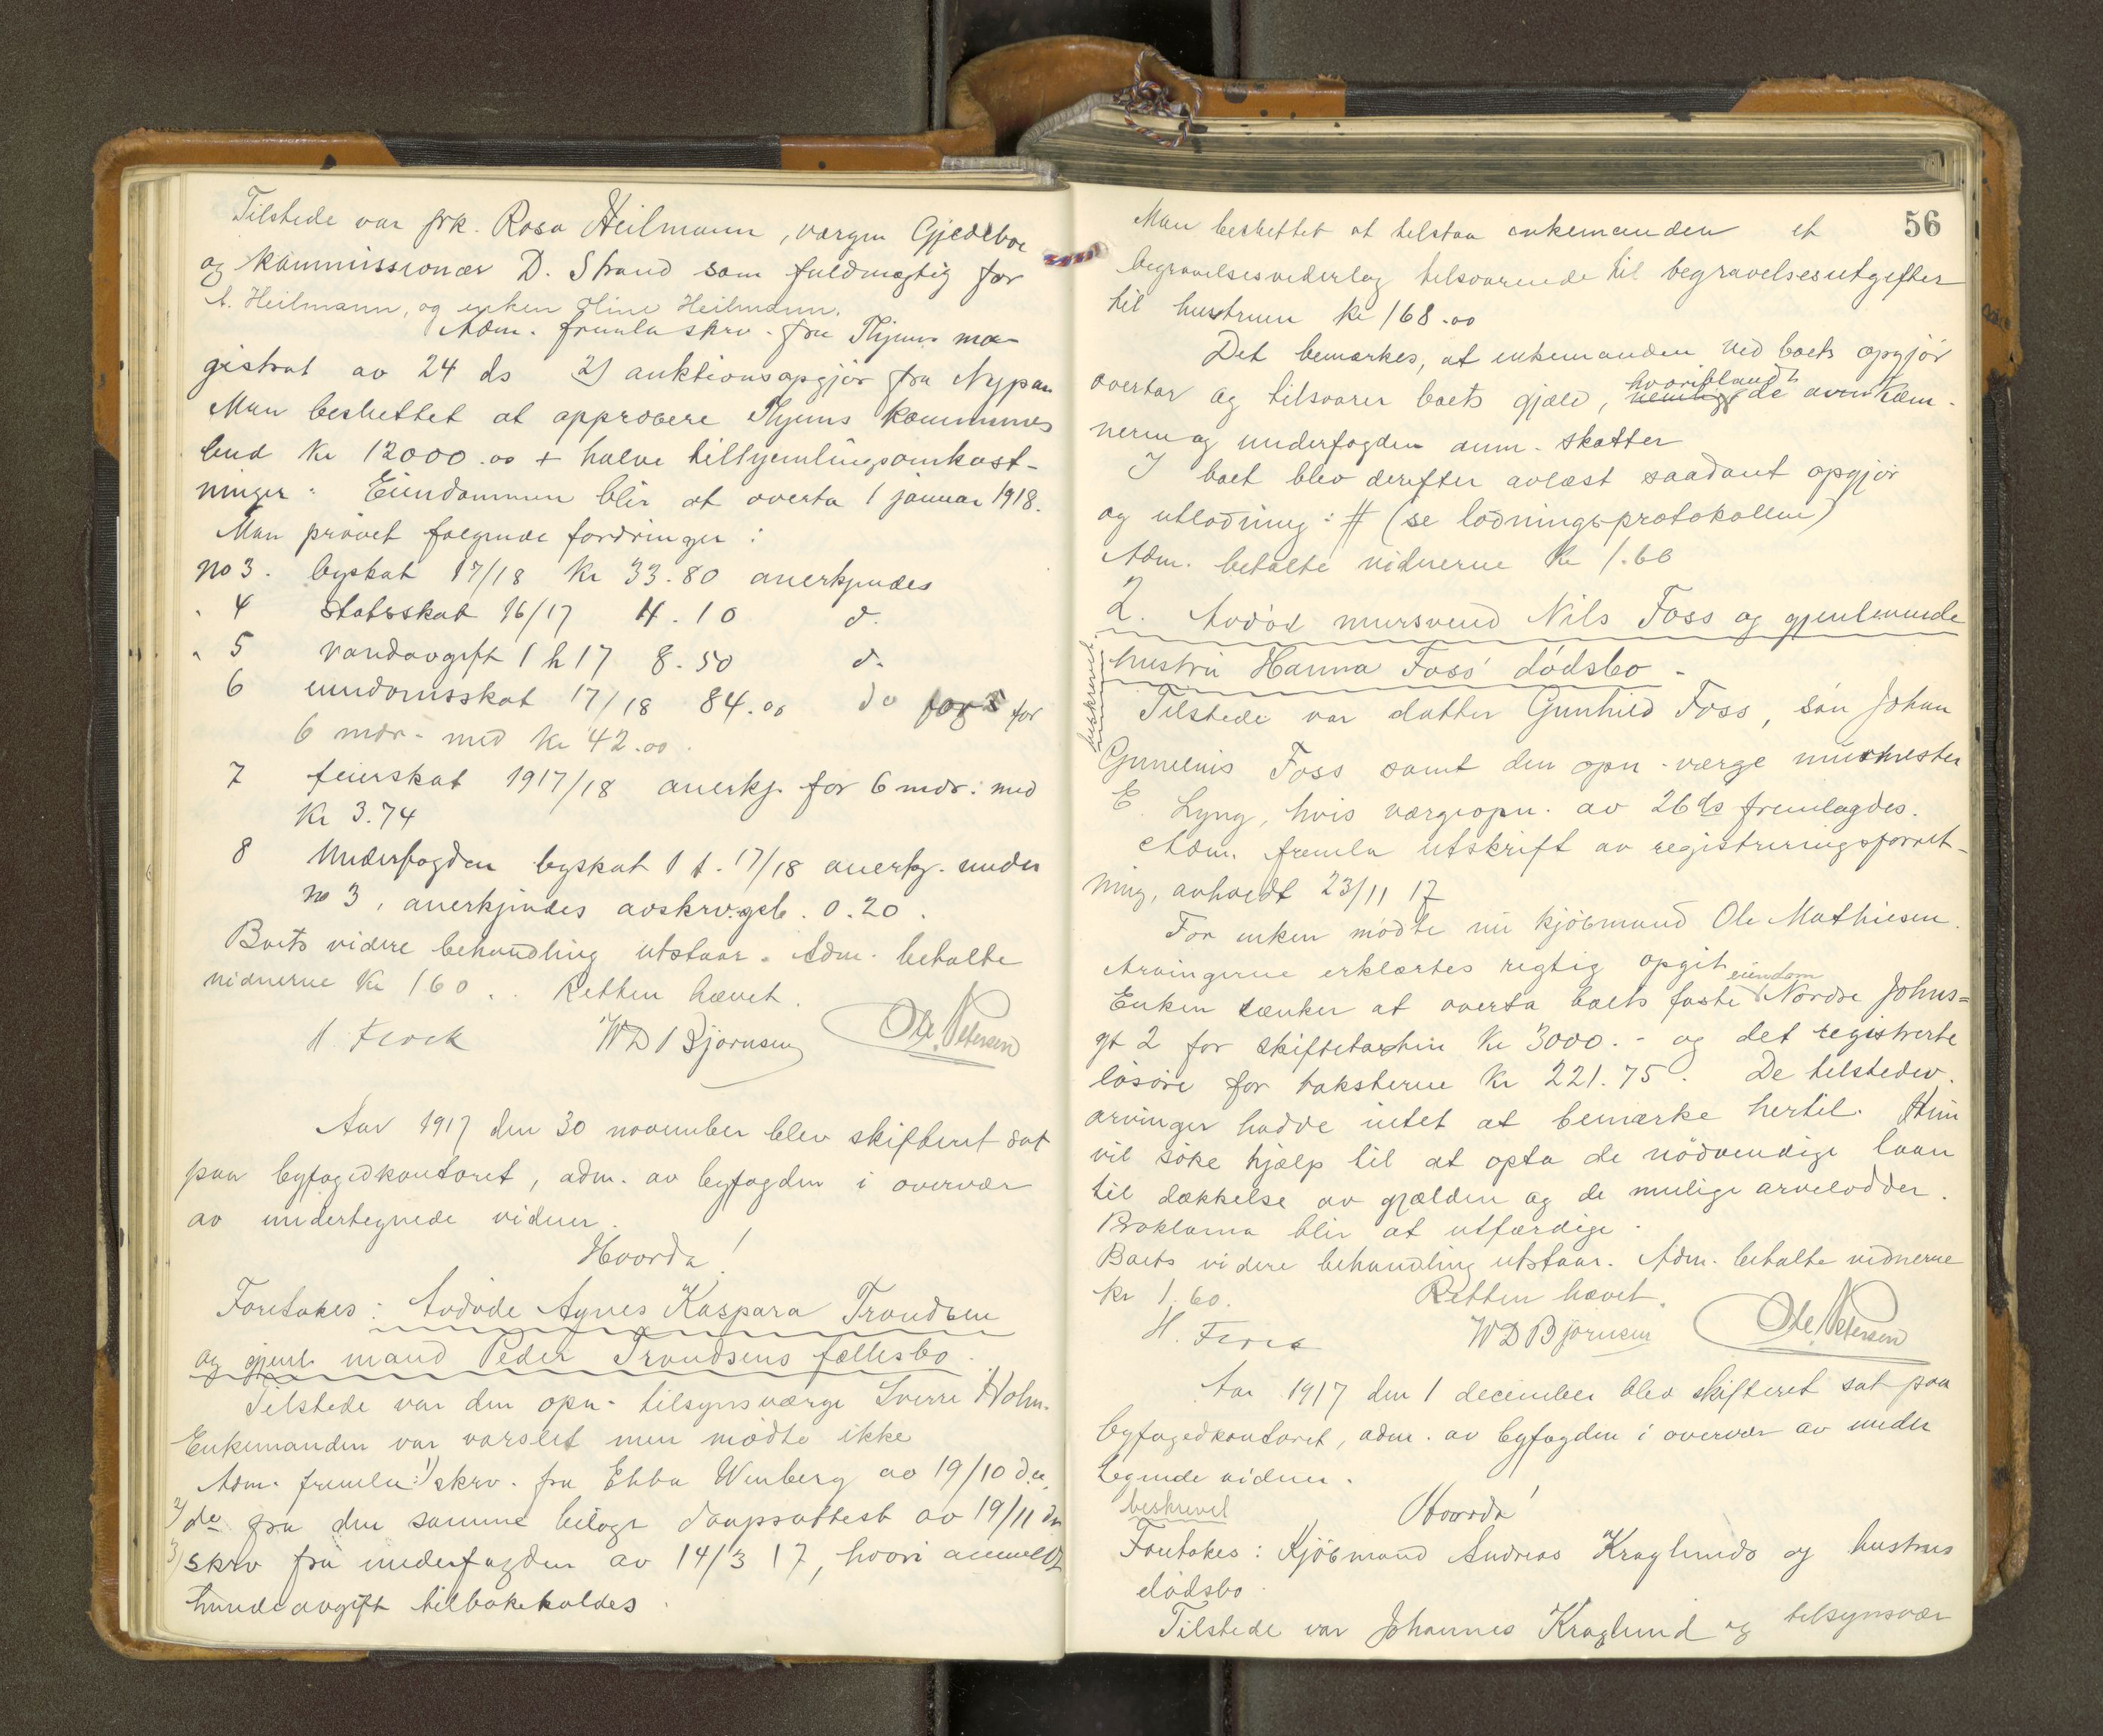 Tilstede var frk. Rosa Heilmann, vergen Gjedeboe
og kommissionær D. Strand som fuldmægtig for
A. Heilmann, og enken Oline Heilmann.
Adm. fremla skrv. fra Thjems ma-
gistrat av 24 ds 2) auktionsopgjør fra Nypan
Man besluttet at approbere Thjems kommunes
bud Kr 12000.00 + halve tilhjemlingsomkost-
ninger. Eiendommen blir at overta 1 januar 1918.
Man prøvet følgende fordringer:
no 3. byskat 17/18 Kr 33.80 anerkjendes
" 4 statsskat 16/17 4.10 d.
" 5 vandavgift 1 h 17 8.50 d.
6 eiendomsskat 17/18 84.00 do for
6 mdr. med Kr 42.00.
7 feierskat 1917/18 anerkj. for 6 mdr. med
Kr 3.74
8 Underfogden byskat 1 t. 17/18 anerkj. under
no 3, anerkjendes avskrv.geb. 0.20.
Boets videre behandling utstaar. Adm. betalte
vidnerne Kr 1 60. Retten hævet.
WD Bjørnsen Ole Petersen
Aar 1917 den 30 november blev skifteret sat
paa byfogedkontoret, adm. av byfogden i overvær
av undertegnede vidner.
Hvorda!
Foretokes: Avdøde Agnes Kaspara Trondsen
og gjenl. mand Peder Trondsens fællesbo.
Tilstede var den opn. tilsynsværge Sverre Holm.
Enkemanden var varslet men mødte ikke
Adm. fremla: 1) skrv. fra Ebba Winberg av 19/10 d.a.
2) do fra den samme bilagt daapsattest av 19/11 dn
3) skrv fra underfogden av 14/3 17, hvori anmeldt
hundeavgift tilbakekaldes.
56
Man besluttet at tilstaa enkemanden et
begravelsesvederlag tilsvarende til begravelsesutgifter
til hustruen kr 168.00
Det bemærkes, at enkemanden ved boets opgjør
overtar og tilsvarer boets gjæld, hvoriblandt de av kæm-
neren og underfogden anm. skatter
I boet blev derefter avlæst saadant opgjør
og utlodning: # (se lodningsprotokollen)
Adm. betalte vidnerne Kr 1.60
2. Avdød mursvend Nils Foss og gjenlevende
hustru Hanna Foss' dødsbo.
beskrevet
Tilstede var datter Gunhild Foss, søn Johan
Gunelius Foss samt den opn. værge murmester
E. Lyng, hvis vergeopn. av 26 ds fremlagdes.
Adm. fremla utskrift av registreringsforret-
ning, avholdt 23/11 17
For enken mødte nu kjøbmand Ole Mathiesen.
Arvingerne erklærtes rigtig opgit
Enken tænker at overta boets faste eiendom Nordre Johns=
gt 2 for skiftetaksten Kr 3000.- og det registrerte
løsøre for taksterne Kr 221.75. De tilstedev.
arvinger hadde intet at bemærke hertil. Hun
vil søke hjælp til at opta de nødvendige laan
til dækkelse av gjælden og de mulige arvelodder.
Proklama blir at utfærdige.
Boets videre behandling utstaar. Adm. betalte vidnerne
kr 1.60. Retten hævet.
WD Bjørnsen Ole Petersen
Aar 1917 den 1 december blev skifteret sat paa
byfogedkontoret, adm. av byfogden i overvær av under
tegnede vidner.
beskrevet
Hvorda!
Foretokes: Kjøbmand Andreas Kraglunds og hustrus
dødsbo.
Tilstede var Johannes Kraglund og tilsynsvær